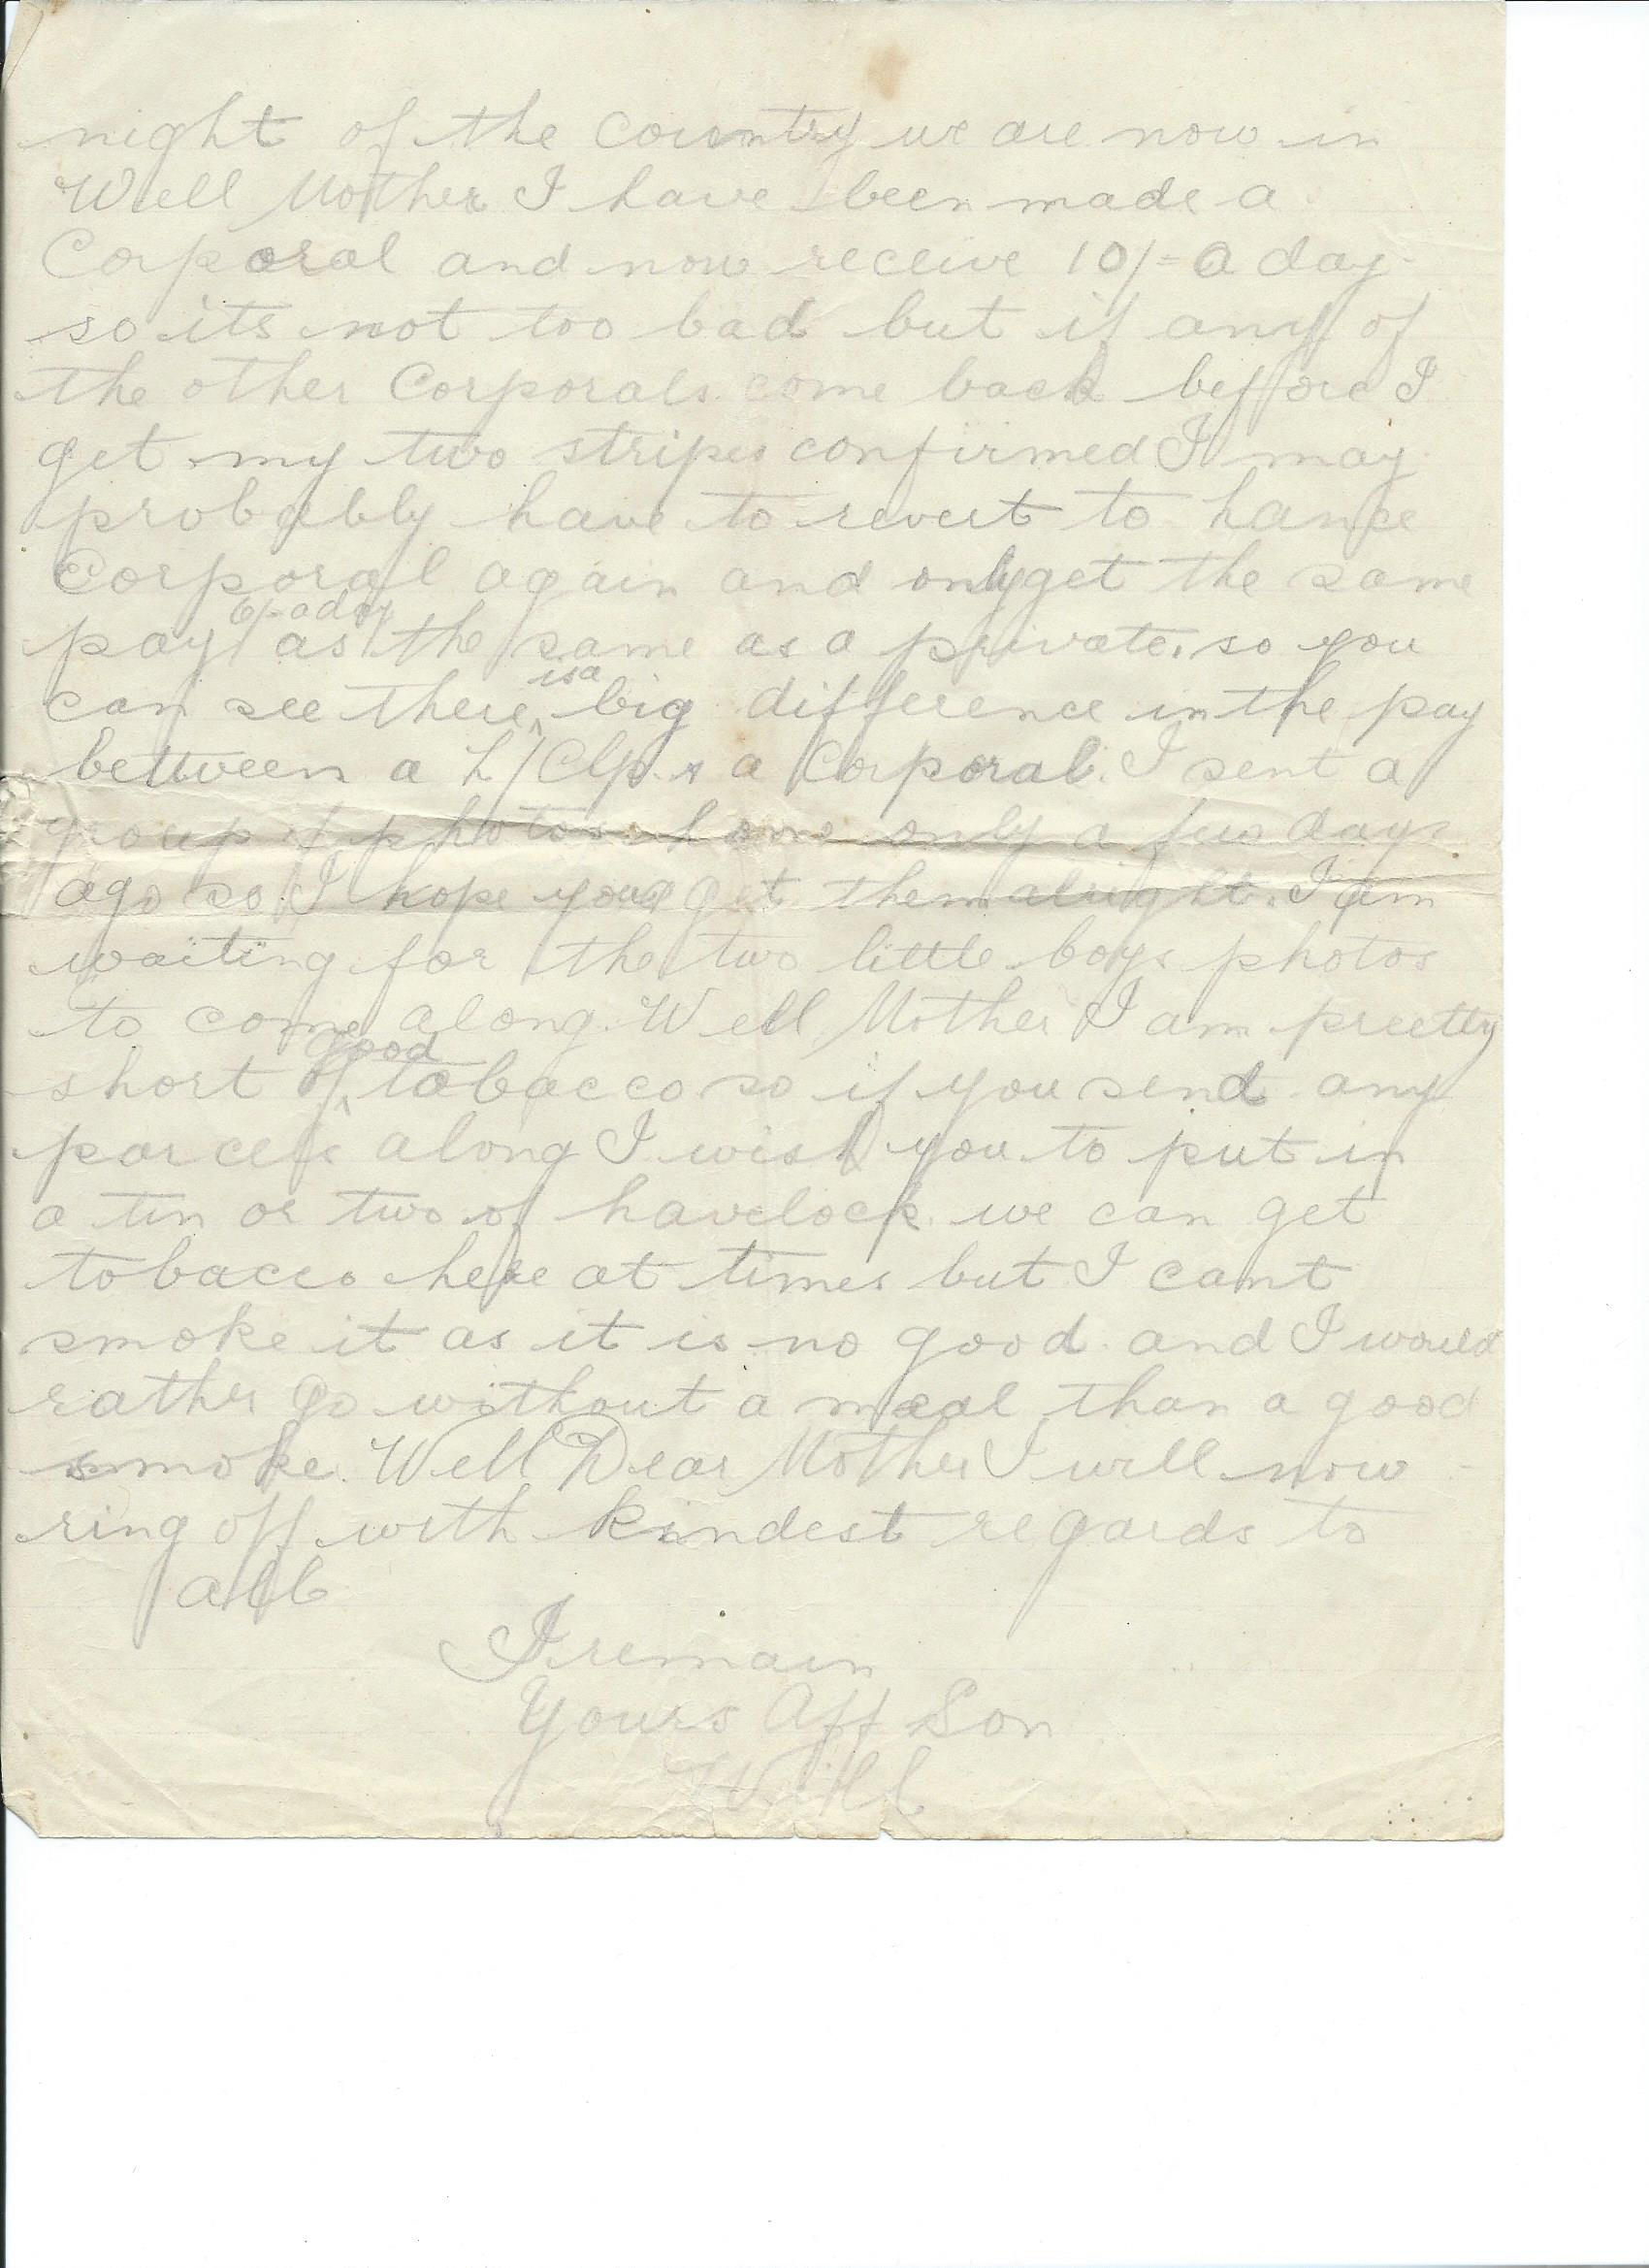 night of the country we are now in
Well Mother I have been made a
Corporal and now receive 10/- a day
so its not too bad but if any of
the other Corporals come back before I
get my two stripes confirmed I may
probably have to revert to Lance
Corporal again and only get the same
6/- a day
pay as the same as a private. so you
is a
can see there big difference in the pay
between a L/Clp & a Corporal. I sent a
group of photos home only a few days
ago so I hope you get them alright. I am
waiting for the two little boys photos
to come along. Well Mother I am preetty
good
short of tobacco so if you send any
parcels along I wish you to put in
a tin or two of havelock we can get
tobacco here at times but I cant
smoke it as it is no good and I would
rather go without a meal than a good
smoke. Well Dear Mother I will now
ring off with kindest regards to
all
I remain
Yours Aff Son
Will